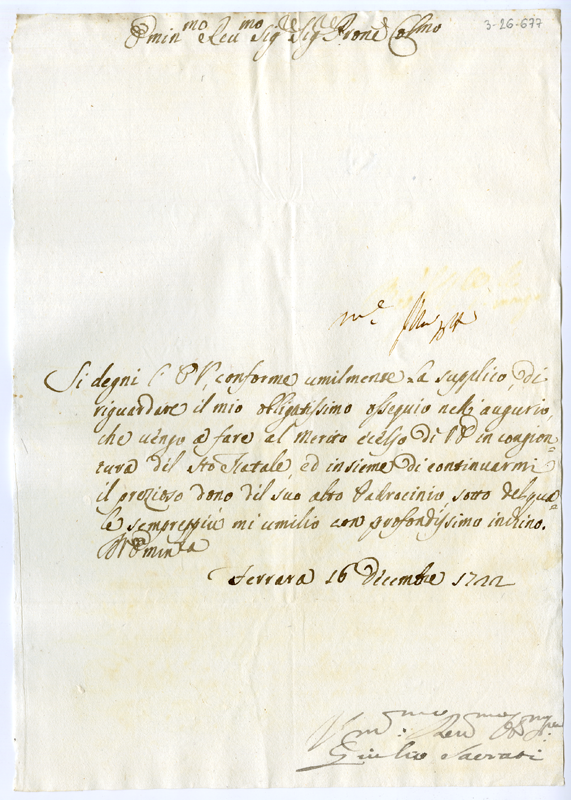 3-26-677
Emin.mo e Reu.mo Sig.re Sig.re Prone Colmo
Si degni l'E V, conforme umilmente La supplico, di
riguardare il mio obligatissimo ossequio nell'augurio,
che uengo a fare al Merito eccelso di V E in congion=
tura del Sto Natale, ed insieme di continuarmi
il prezioso dono del suo alto Patrocinio sotto del qua=
le sempreppiù mi umilio con profondissimo inchino.
Di V Emin.za
Ferrara 16 Dicembre 1722
Giulio Sacrati